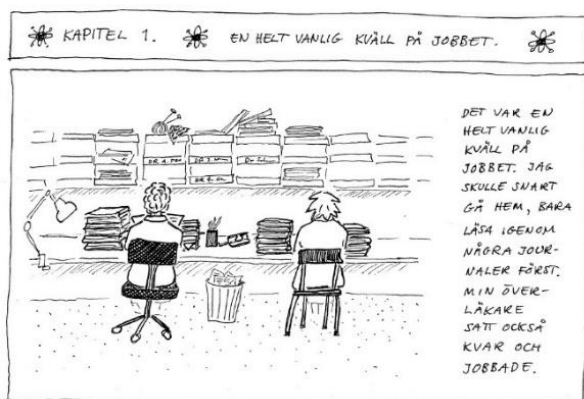 KAPITEL 1. EN HELT VANLIG KVÄLL PÅ JOBBET.
DET VAR EN
HELT VANLIG
KVÄLL PÅ
JOBBET. JAG
SKULLE SNART
GÅ HEM, BARA
LÄSA IGENOM
NÅGRA JOUR-
NALER FÖRST.
MIN ÖVER-
LÄKARE
SATT OCKSÅ
KVAR OCH
JOBBADE.